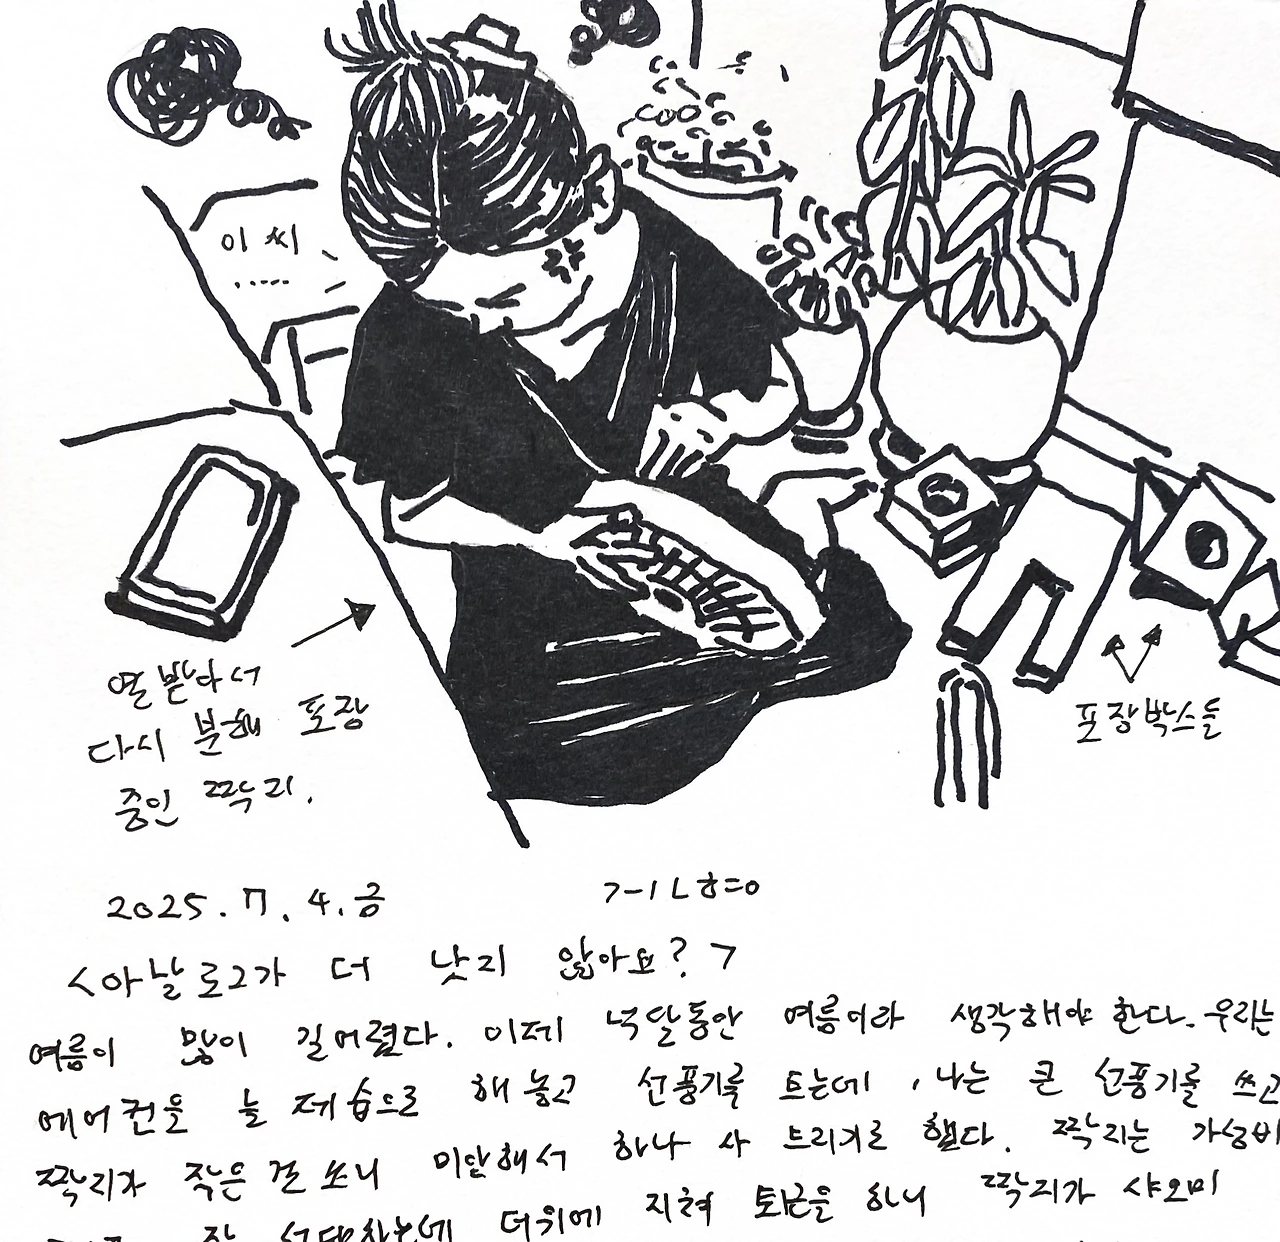 이 씨
.....
열 받아서
다시 분해 포장
중인 짝지.
포장박스들
2025. 7. 4. 금
<아날로그가 더 낫지 않아요?>
여름이 많이 길어졌다. 이제 넉달동안 여름이라 생각해야 한다. 우리는
에어컨을 늘 제습으로 해 놓고 선풍기를 트는데, 나는 큰 선풍기를 쓰고
짝지가 작은 걸 쓰니 미안해서 하나 사 드리기로 했다. 짝지는 가성비
잘 더위에 지쳐 퇴근을 하니 짝지가 샤오미